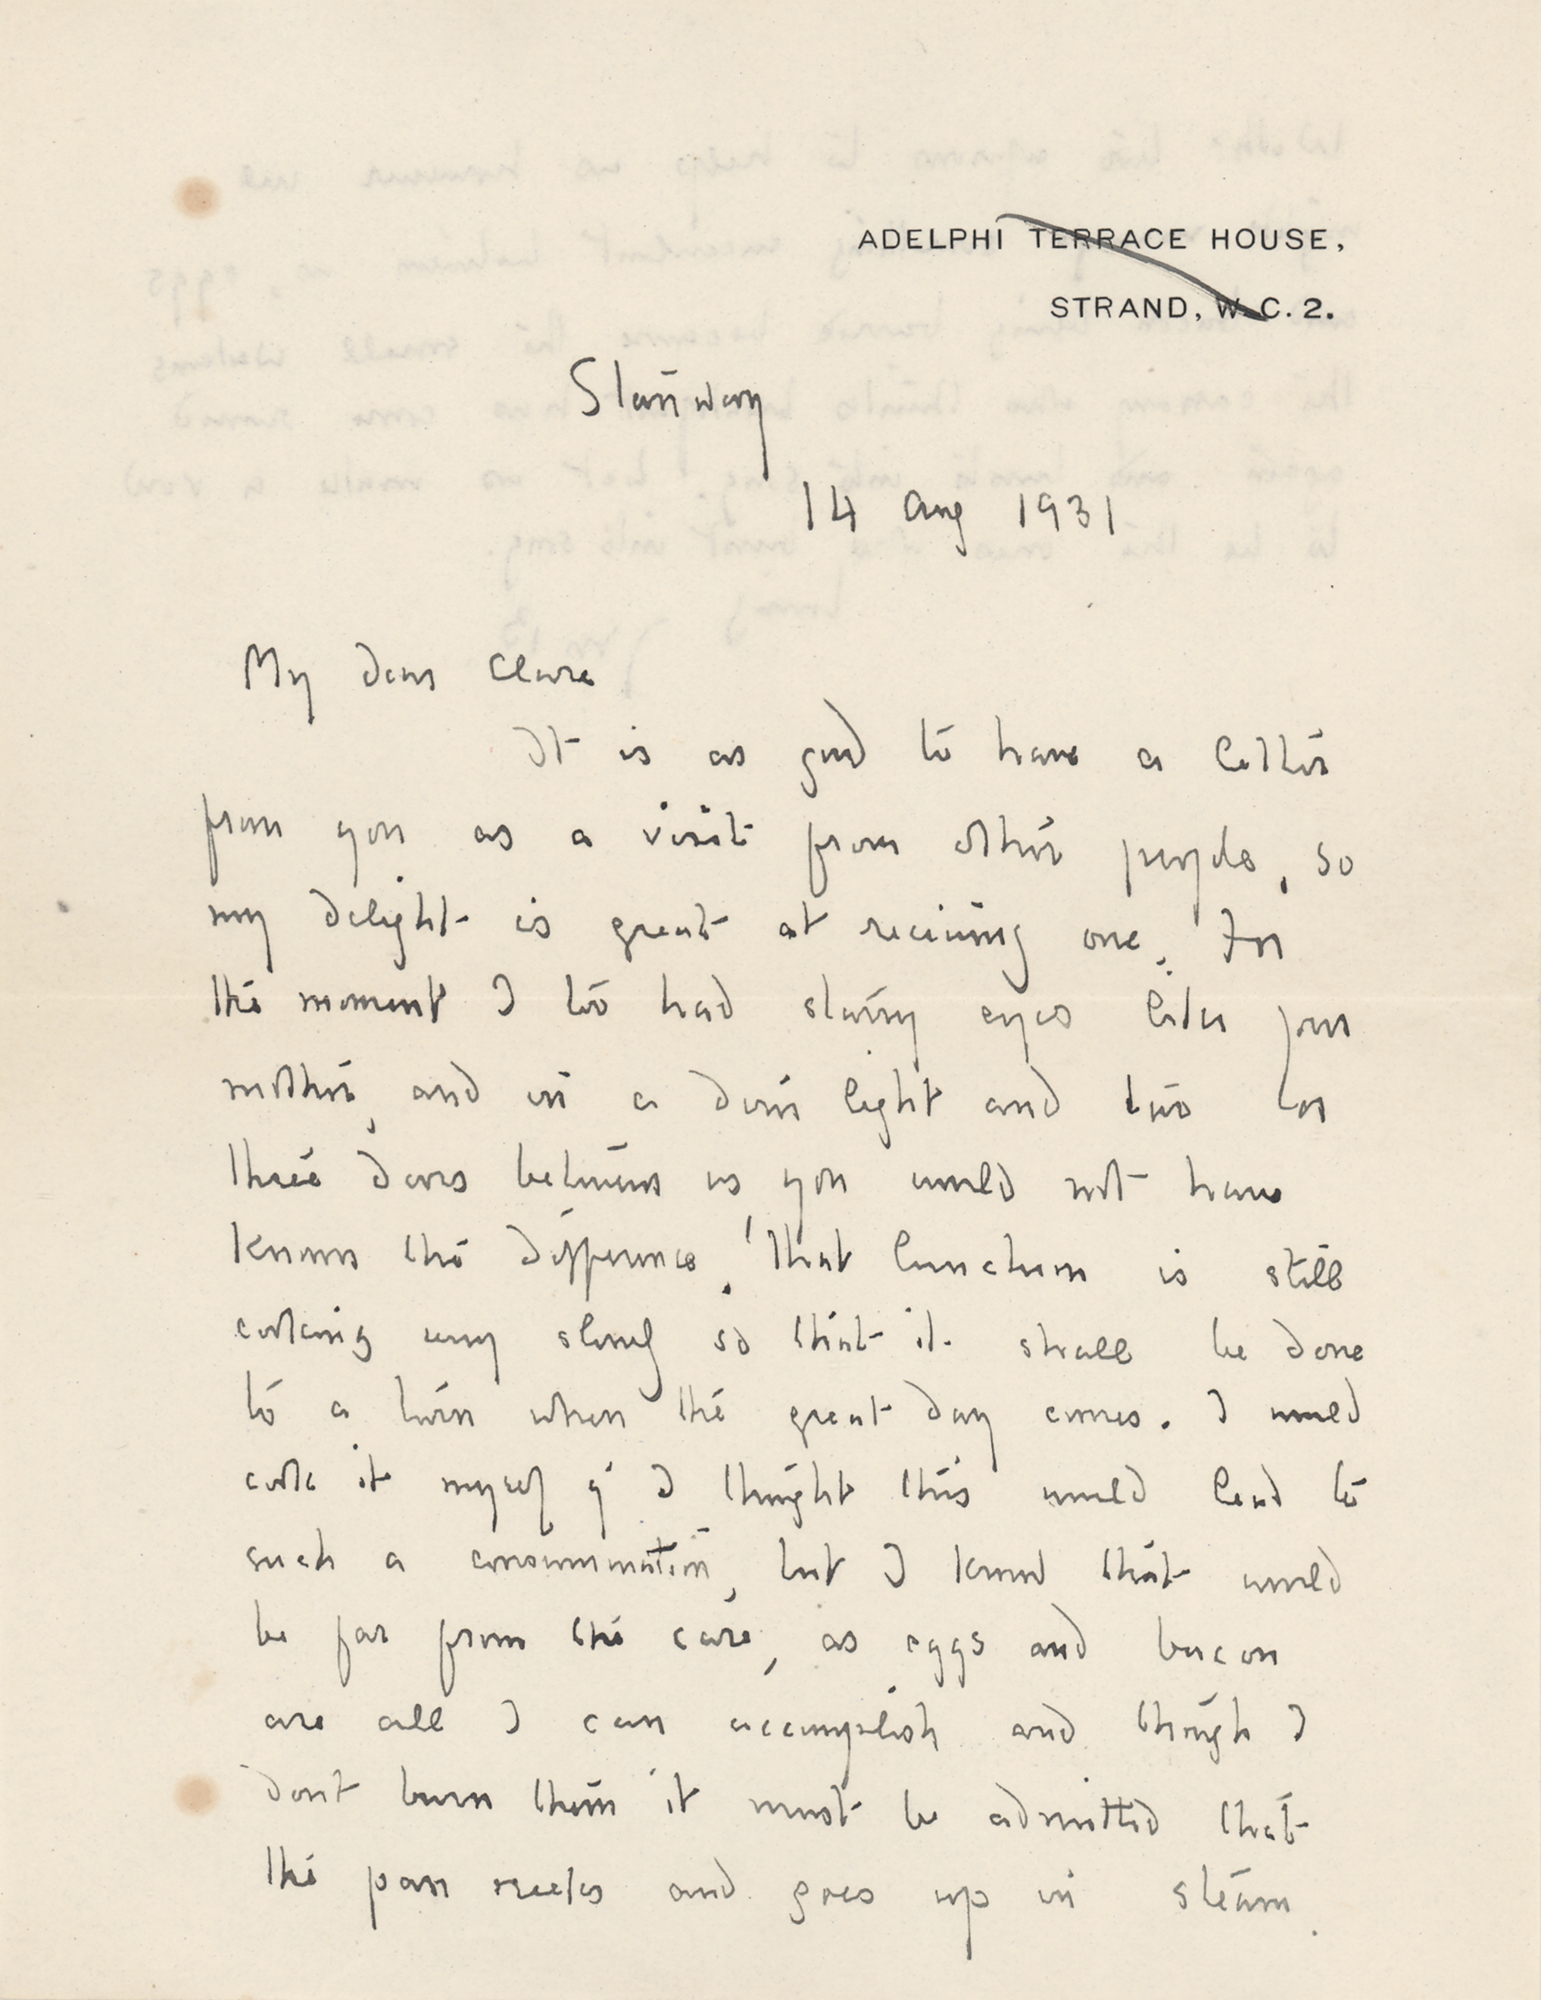 ADELPHI TERRACE HOUSE,
STRAND, W.C.2.
Stanway
14 Aug 1931
My dear Clare
It is as good to have a letter
from you as a visit from other people, so
my delight is great at receiving one. For
the moment I too had starry eyes like your
mother, and in a dim light and two or
three doors between us you would not have
known the difference. That luncheon is still
cooking very slowly so that it shall be done
to a turn when the great day comes. I would
cook it myself if I thought this would lead to
such a consummation, but I know that would
be far from the case, as eggs and bacon
are all I can accomplish and though I
dont burn them it must be admitted that
the pan reeks and goes up in steam.